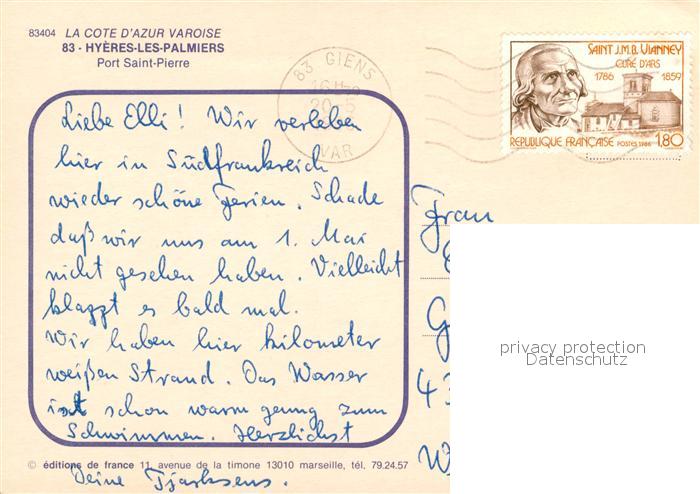 83404 LA COTE D'AZUR VAROISE
83 - HYÈRES-LES-PALMIERS
Port Saint-Pierre
83 GIENS
VAR
SAINT J.M.B. VIANNEY
CURÉ D'ARS
1786 1859
RÉPUBLIQUE FRANÇAISE POSTES 1986 1,80
Liebe Elli! Wir verleben
hier in Südfrankreich
wieder schöne Ferien. Schade
daß wir uns am 1. Mai
nicht gesehen haben. Vielleicht
klappt es bald mal.
Wir haben hier kilometer
weißen Strand. Das Wasser
ist schon warm genug zum
Schwimmen. Herzlichst
Deine Tjarksens.
Frau
G
43
W
privacy protection
Datenschutz
© éditions de france 11, avenue de la timone 13010 marseille, tél. 79.24.57